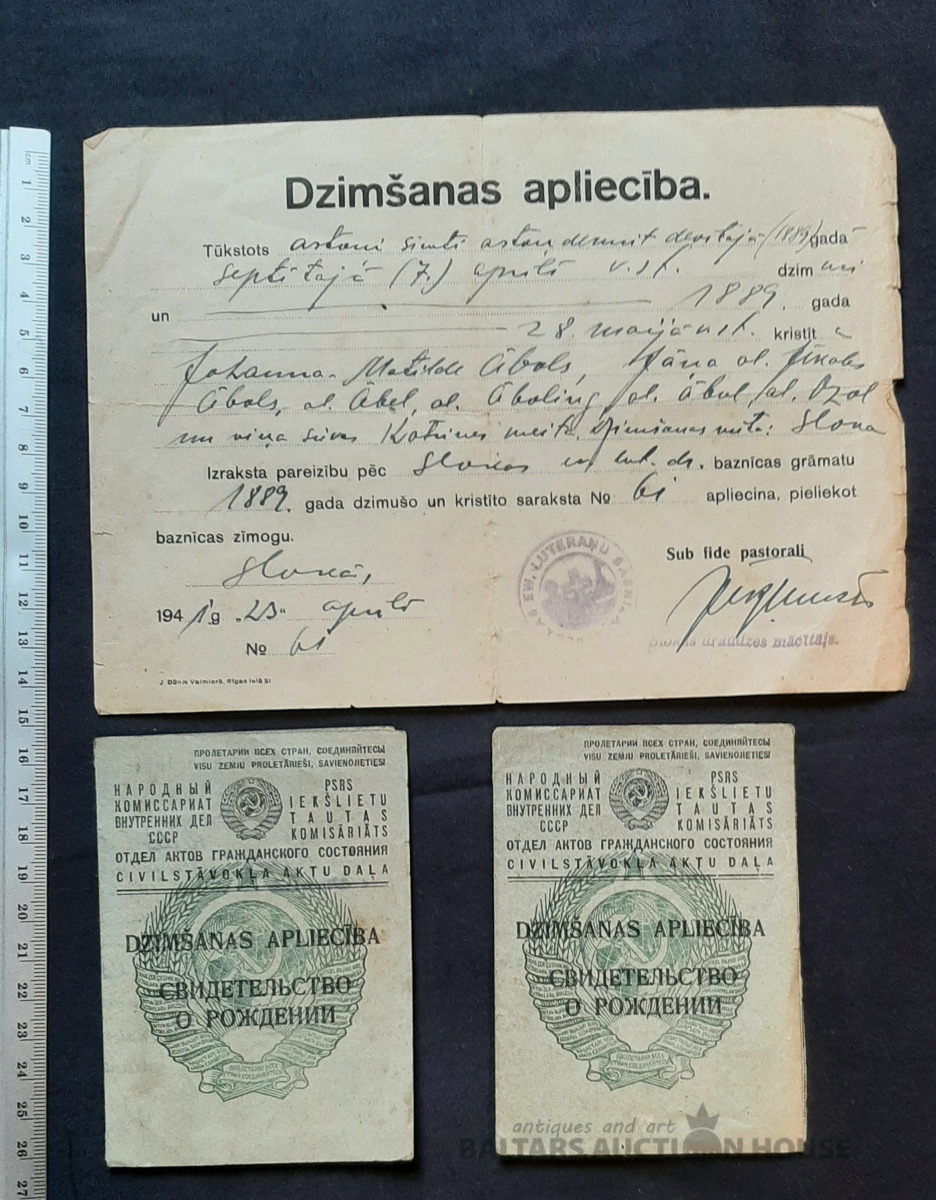 Dzimšanas apliecība.
Tūkstots astoņi simti astoņdesmit devītajā (1889) gadā
septītajā (7.) aprīlī v. st. dzim usi
un 1889. gada
28. maijā kristīt a
Johanna Matilde Ābols, Jāņa al. Jēkaba
Ābols, al. Ābel, al. Āboling, al. Ābul, al.
un viņa sievas Katrīnes meita. Dzimšanas vieta: Sloka
Izraksta pareizību pēc Slokas ev. lut. dr. baznīcas grāmatu
1889. gada dzimušo un kristīto saraksta No 61 apliecina, pieliekot
baznīcas zīmogu.
Slokā,
Sub fide pastorali
1941 g. „23“ aprīlī
No 61
EW. LUTERAŅU BAZNĪCA
Slokas draudzes mācītājs.
J. Dūnis Valmierā, Rīgas ielā 21
cm 1 2 3 4 5 6 7 8 9 10 11 12 13 14 15 16 17 18 19 20 21 22 23 24 25 26 27
ПРОЛЕТАРИИ ВСЕХ СТРАН, СОЕДИНЯЙТЕСЬ!
VISU ZEMJU PROLETĀRIEŠI, SAVIENOJIETIES!
НАРОДНЫЙ
КОМИССАРИАТ
ВНУТРЕННИХ ДЕЛ
СССР
PSRS
IEKŠLIETU
TAUTAS
KOMISĀRIĀTS
ОТДЕЛ АКТОВ ГРАЖДАНСКОГО СОСТОЯНИЯ
CIVILSTĀVOKĻA AKTU DAĻA
DZIMŠANAS APLIECĪBA
СВИДЕТЕЛЬСТВО
О РОЖДЕНИИ
ПРОЛЕТАРИИ ВСЕХ
СТРАН, СОЕДИНЯЙТЕСЬ!
ПРОЛЕТАРИИ ВСЕХ СТРАН, СОЕДИНЯЙТЕСЬ!
VISU ZEMJU PROLETĀRIEŠI, SAVIENOJIETIES!
НАРОДНЫЙ
КОМИССАРИАТ
ВНУТРЕННИХ ДЕЛ
СССР
PSRS
IEKŠLIETU
TAUTAS
KOMISĀRIĀTS
ОТДЕЛ АКТОВ ГРАЖДАНСКОГО СОСТОЯНИЯ
CIVILSTĀVOKĻA AKTU DAĻA
DZIMŠANAS APLIECĪBA
СВИДЕТЕЛЬСТВО
О РОЖДЕНИИ
ПРОЛЕТАРИИ ВСЕХ
СТРАН, СОЕДИНЯЙТЕСЬ!
antiques and art
BALTARS AUCTION HOUSE